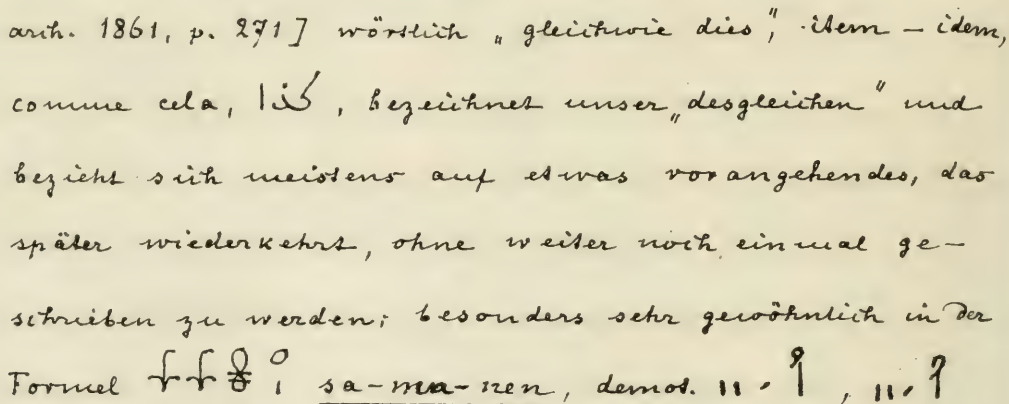 arch. 1861, p. 271] wörtlich „gleichwie dies”, item – idem,
comme cela, كذا, bezeichnet unser „desgleichen” und
bezieht sich meistens auf etwas vorangehendes, das
später wiederkehrt, ohne weiter noch einmal ge-
schrieben zu werden; besonders sehr gewöhnlich in der
Formel sa-ma-nen, demot.